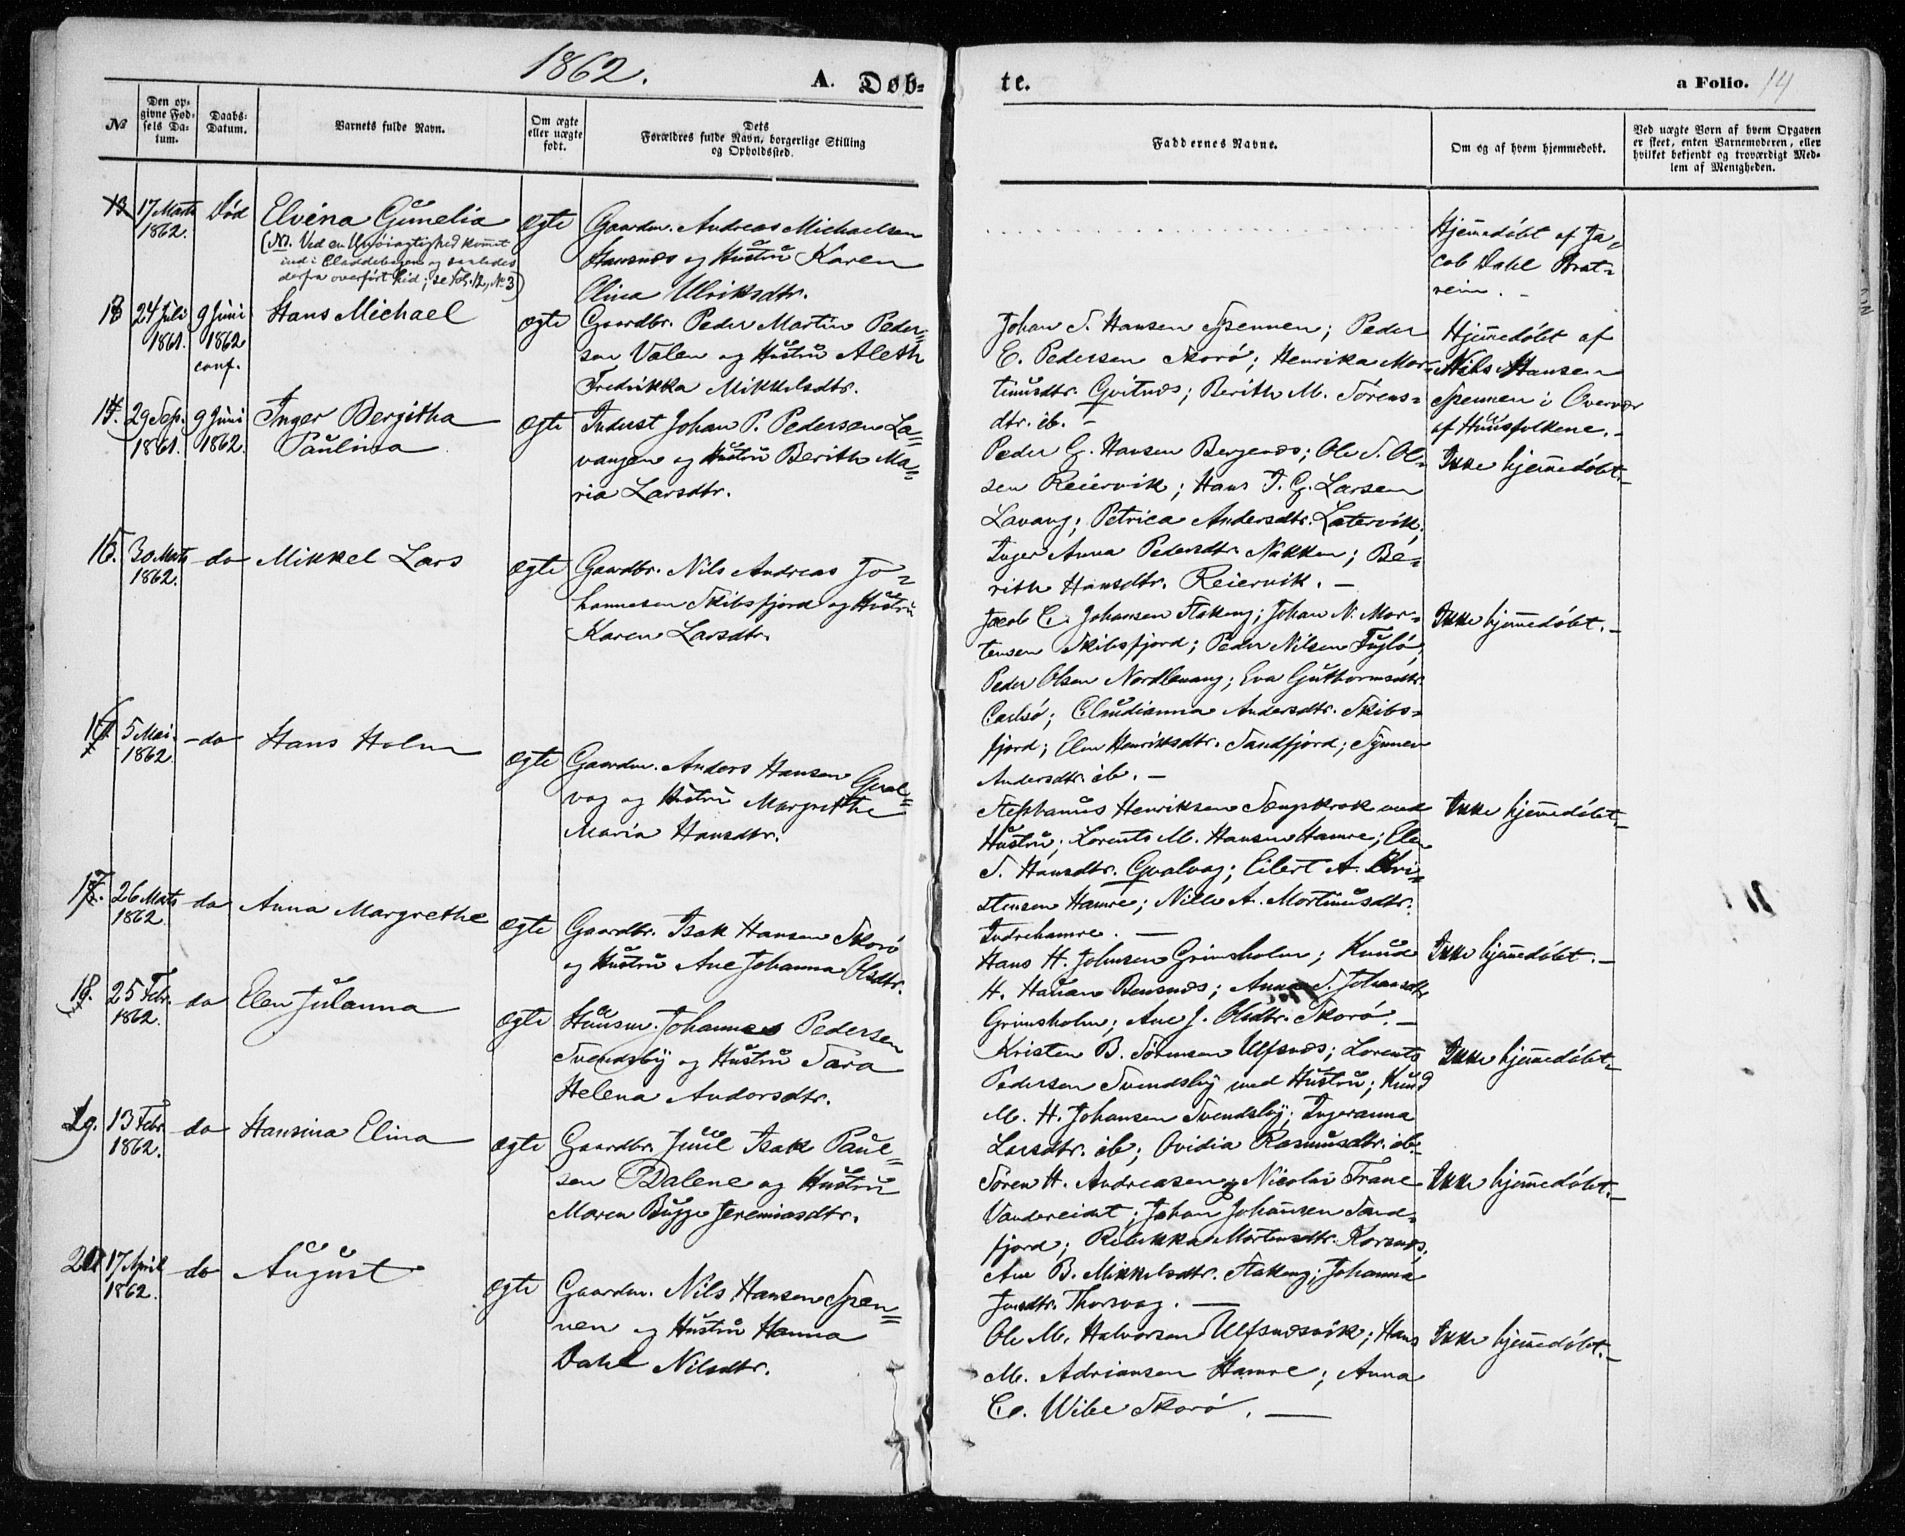 1862.
A. Døb-
te.
a Folio. 14
№
Den op-
givne Fød-
sels Da-
tum.
Daabs-
Datum.
Varnets fulde Navn.
Om ægte
eller uægte
født.
Dets
Forældres fulde Navn, borgerlige Stilling
og Opholdssted.
Faddernes Navne.
Om og af hvem hjemmedøbt.
Ved uægte Børn af hvem Opgaven
er skeet, enten Barnemoderen, eller
hvilket bekjendt og troværdigt Med-
lem af Menigheden.
17 Marts
1862.
Død
Elvina Gunelia
(NB. Ved en Unøiagtighed kommet
ind i Kladdebogen og saaledes
derfra overført hid; se Fol. 12, № 3)
ægte
Gaardm. Andreas Michaelsen
Hansnæs og Hustru Karen
Olina Ulriksdtr.
Hjemmedøbt af Ja-
cob Dahl Brat-
rein. -
13
24 Juli
1861.
9 Juni
1862
conf.
Hans Michael
ægte
Gaardbr. Peder Martin Peder-
sen Valen og Hustru Aleth
Fredrikka Mikkelsdtr.
Johan S. Hansen Spennen; Peder
E. Pedersen Skorö; Henrika Mor-
tinusdtr. Gvitnæs; Berith M. Sörens-
dtr. ib. -
Hjemmedøbt af
Nils Hansen
Spennen i Overvær
af Huusfolkene. -
14.
29 Sep.
1861.
9 Juni
1862.
Inger Bergitha
Paulina
ægte
Inderst Johan P. Pedersen La-
vangen og Hustru Berith Ma-
ria Larsdtr.
Peder G. Hansen Bergenæs; Ole S. Ol-
sen Reiervik; Hans J. G. Larsen
Lavang; Petrica Andersdtr. Latervik;
Inger Anna Pedersdtr. Nakken; Be-
rith Hansdtr. Reiervik. -
Ikke hjemmedøbt. -
15.
30 Marts
1862.
- do
Mikkel Lars
ægte
Gaardbr. Nils Andreas Jo-
hannesen Skibsfjord og Hustru
Karen Larsdtr.
Jacob C. Johansen Stakeng; Johan N. Mor-
tensen Skibsfjord; Peder Nilsen Fuglö;
Peder Olsen Nordlenang; Eva Guthormsdtr.
Carlsö; Claudianna Andersdtr. Skibs-
fjord; Elen Henriksdtr. Sandfjord; Synnev
Andersdtr. ib. -
Ikke hjemmedøbt. -
16
5 Mai
1862
- do
Hans Holm
ægte
Gaardm. Anders Hansen Gval-
vag og Hustru Margrethe
Maria Hansdtr.
Stephanus Henriksen Sengskrok med
Hustru; Lorents M. Hansen Hamre; Elen
S. Hansdtr. Gvalvag; Eilert A. Chri-
stensen Hamre; Nille A. Mortinusdtr.
Indrehamre. -
Ikke hjemmedøbt -
17.
26 Marts
1862.
do
Anna Margrethe
ægte
Gaardbr. Isak Hansen Skorö
og Hustru Ane Johanna Olsdtr.
Hans H. Johnsen Grimsholm; Knud
H. Hansen Bensnæs; Anna S. Johansdtr.
Grimsholm; Ane J. Olsdtr. Skorö. -
Ikke hjemmedøbt. -
18.
25 Febr.
1862.
do
Elen Julanna
ægte
Huusm. Johannes Pedersen
Svendsby og Hustru Sara
Helena Andersdtr.
Kristen B. Sörensen Ulfsnæs; Lorents
Pedersen Svendsby med Hustru; Knud
M. H. Johansen Svendsby; Ingeranna
Larsdtr. ib; Ovidia Rasmusdtr. ib.
Ikke hjemmedøbt. -
19.
13 Febr.
1862.
do
Hansina Elina
ægte
Gaardbr. Juul Isak Paul-
sen Dalene og Hustru
Maren Bugge Jeremiasdtr.
Sören H. Andreasen og Nicolai Frane
Vandereidet; Johan Johansen Sand-
fjord; Rebekka Mortensdtr. Korsnæs;
Ane B. Mikkelsdtr. Stakeng; Johanna
Jonsdtr. Thorsvag. -
Ikke hjemmedøbt. -
20
17 April
1862.
do
August
ægte
Gaardm. Nils Hansen Spen-
nen og Hustru Hanna
Dahl Nilsdtr.
Ole M. Halvorsen Ulfsnæsvik; Hans
M. Adriansen Hamre; Anna
C. Wibe Skorö. -
Ikke hjemmedøbt. -